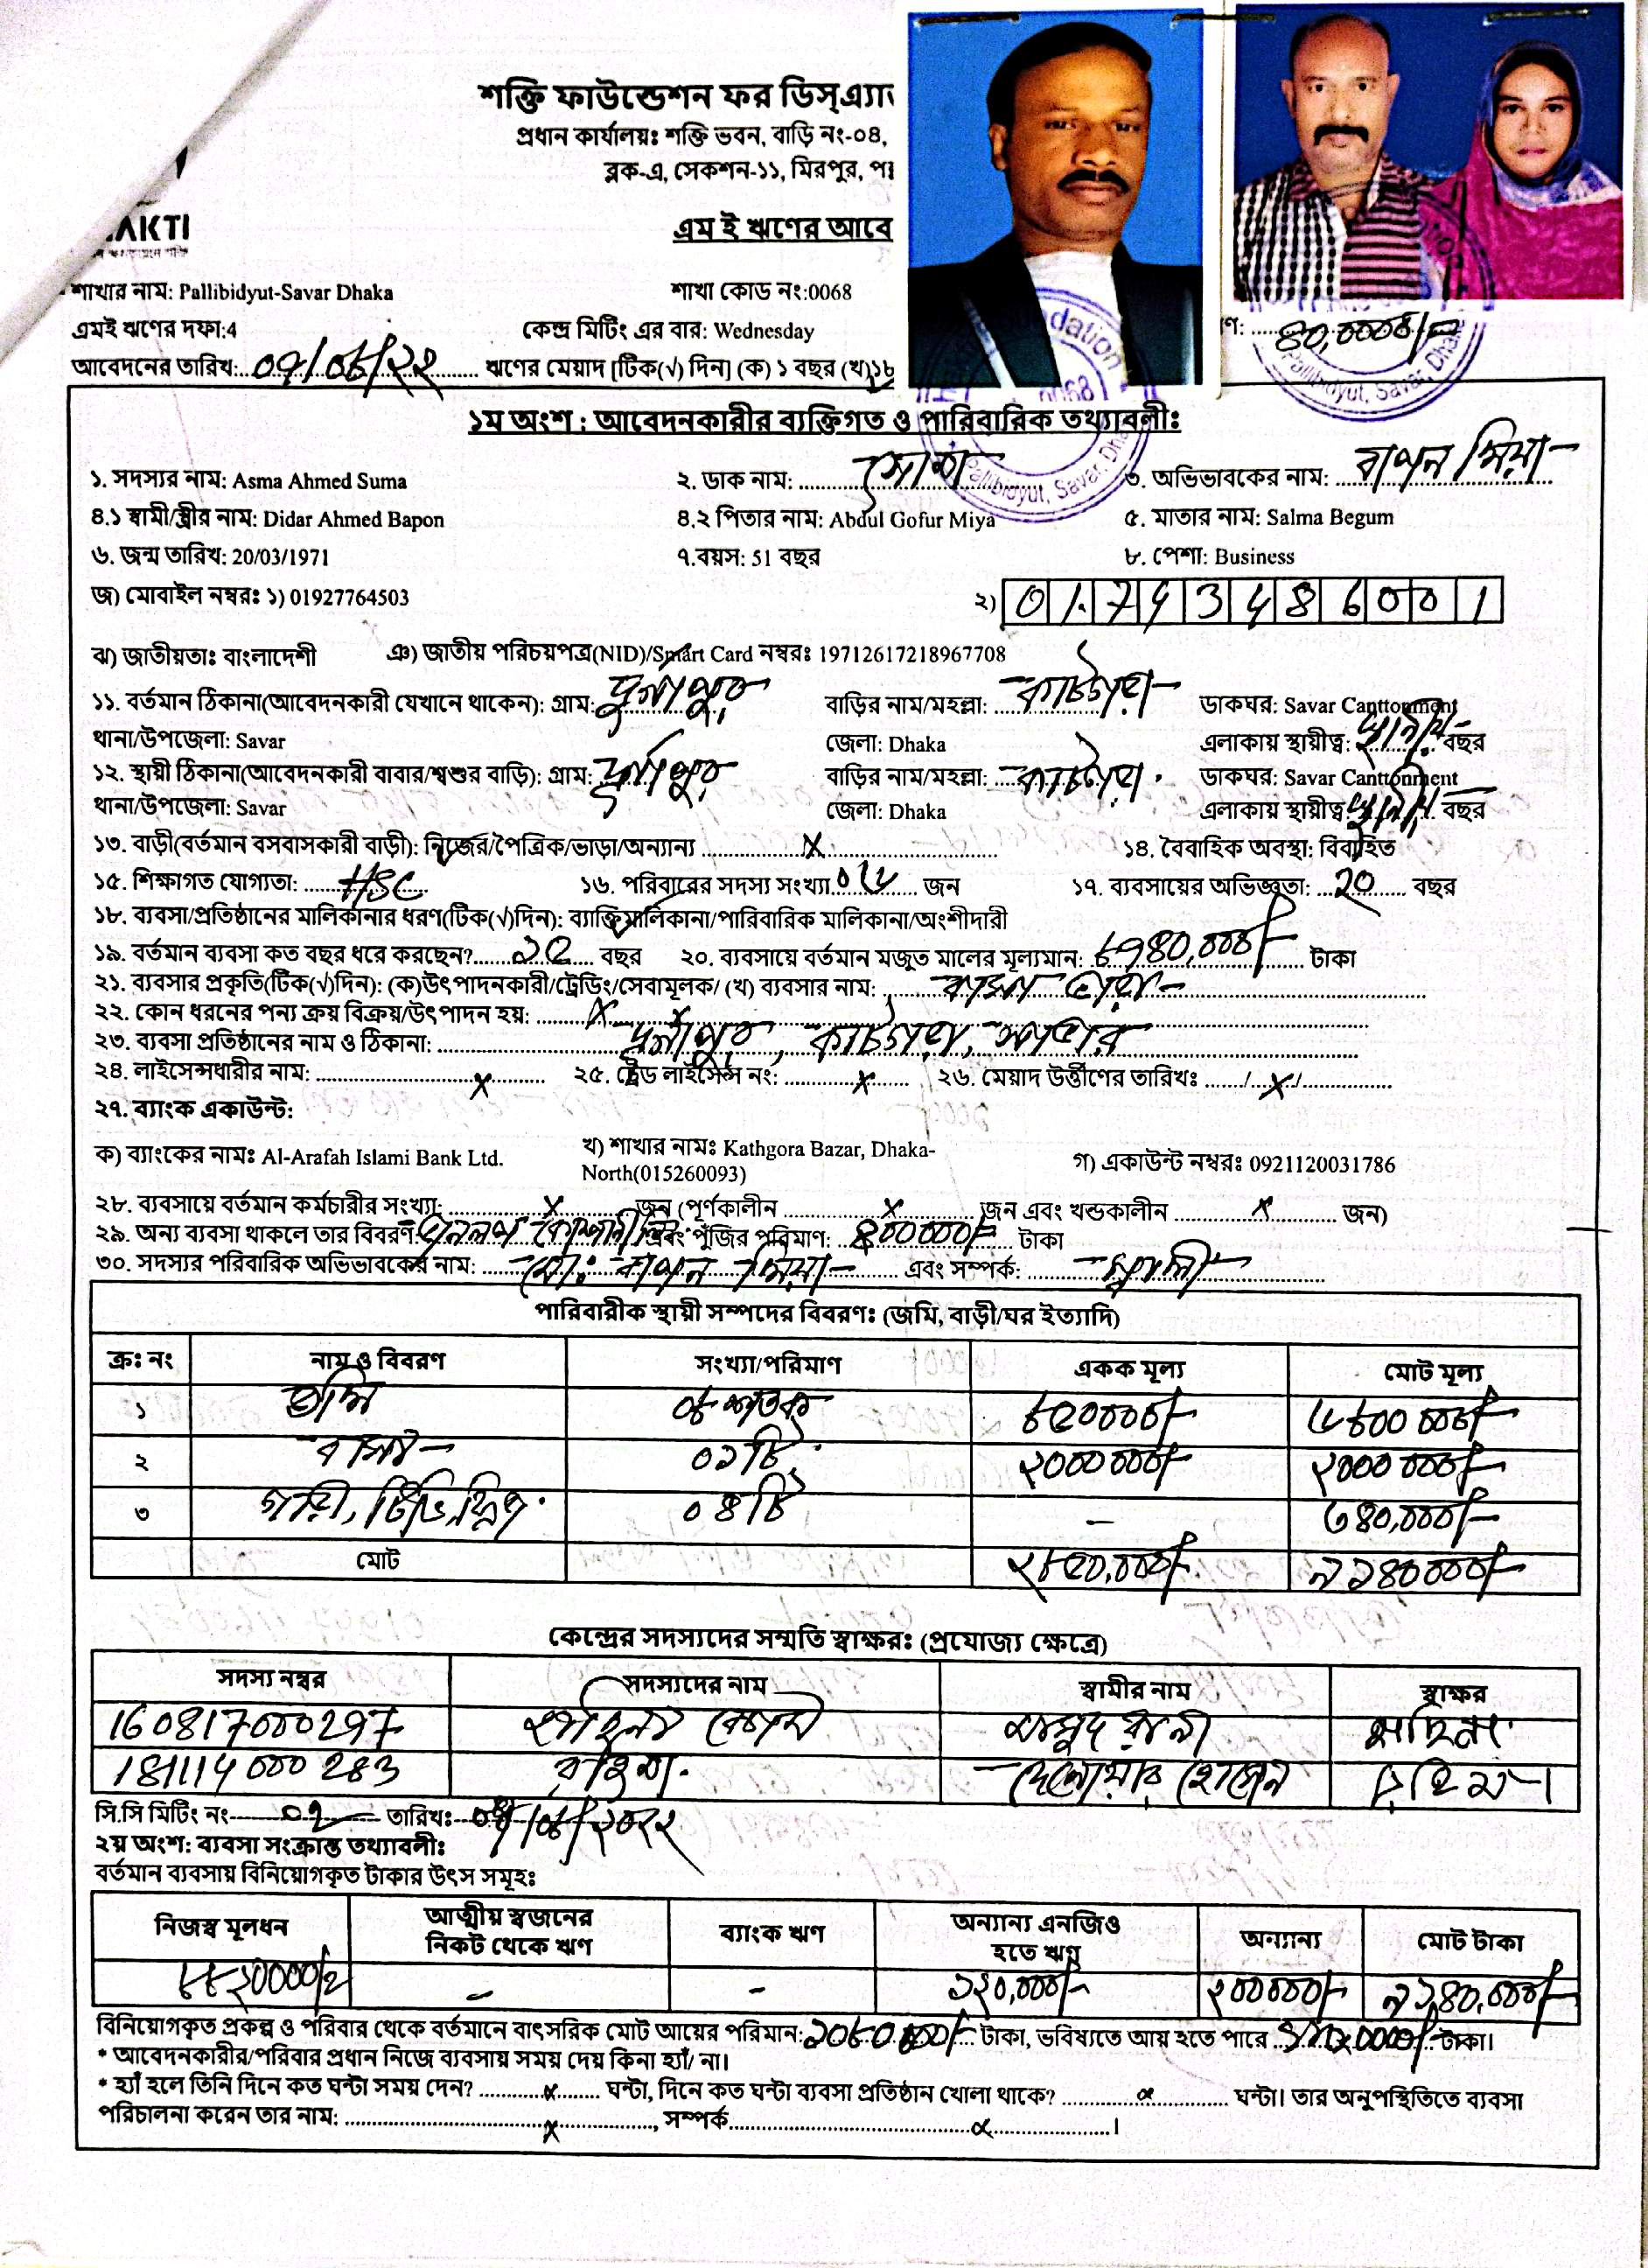 শক্তি ফাউন্ডেশন ফর ডিস্এ্যাড
প্রধান কার্যালয়ঃ শক্তি ভবন, বাড়ি নং-০৪,
ব্লক-এ, সেকশন-১১, মিরপুর,
AKTI
এম ই ঋণের আবে
শাখার নাম: Pallibidyut-Savar Dhaka শাখা কোড নং:0068
এমই ঋণের দফা:4 কেন্দ্র মিটিং এর বার: Wednesday
আবেদনের তারিখ: ০৭/০৮/২২ ঋণের মেয়াদ [টিক(√) দিন] (ক) ১ বছর (খ)১৮
ণ: 80,000/-
Pallibidyut, Savar, Dhaka
0068
১ম অংশ : আবেদনকারীর ব্যক্তিগত ও পারিবারিক তথ্যাবলীঃ
১. সদস্যর নাম: Asma Ahmed Suma ২. ডাক নাম: ৩. অভিভাবকের নাম: বাপন মিয়া
৪.১ স্বামী/স্ত্রীর নাম: Didar Ahmed Bapon ৪.২ পিতার নাম: Abdul Gofur Miya ৫. মাতার নাম: Salma Begum
৬. জন্ম তারিখ: 20/03/1971 ৭.বয়স: 51 বছর ৮. পেশা: Business
জ) মোবাইল নম্বরঃ ১) 01927764503 ২)
ঝ) জাতীয়তাঃ বাংলাদেশী ঞ) জাতীয় পরিচয়পত্র(NID)/Smart Card নম্বরঃ 19712617218967708
১১. বর্তমান ঠিকানা(আবেদনকারী যেখানে থাকেন): গ্রাম: দুর্গাপুর বাড়ির নাম/মহল্লা: কাঠগড়া ডাকঘর: Savar Canttonment
থানা/উপজেলা: Savar জেলা: Dhaka এলাকায় স্থায়ীত্ব: স্থানীয় বছর
১২. স্থায়ী ঠিকানা(আবেদনকারী বাবার/শ্বশুর বাড়ি): গ্রাম: দুর্গাপুর বাড়ির নাম/মহল্লা: কাঠগড়া ডাকঘর: Savar Canttonment
থানা/উপজেলা: Savar জেলা: Dhaka এলাকায় স্থায়ীত্ব: স্থানীয় বছর
১৩. বাড়ী(বর্তমান বসবাসকারী বাড়ী): নিজের/পৈত্রিক/ভাড়া/অন্যান্য X ১৪. বৈবাহিক অবস্থা: বিবাহিত
১৫. শিক্ষাগত যোগ্যতা: HSC ১৬. পরিবারের সদস্য সংখ্যা জন ১৭. ব্যবসায়ের অভিজ্ঞতা: ২০ বছর
১৮. ব্যবসা/প্রতিষ্ঠানের মালিকানার ধরণ(টিক(√)দিন): ব্যাক্তিমালিকানা/পারিবারিক মালিকানা/অংশীদারী
১৯. বর্তমান ব্যবসা কত বছর ধরে করছেন? ১৫ বছর ২০. ব্যবসায়ে বর্তমান মজুত মালের মূল্যমান: টাকা
২১. ব্যবসার প্রকৃতি(টিক(√)দিন): (ক)উৎপাদনকারী/ট্রেডিং/সেবামূলক/ (খ) ব্যবসার নাম: বাসা ভাড়া
২২. কোন ধরনের পন্য ক্রয় বিক্রয়/উৎপাদন হয়: X
২৩. ব্যবসা প্রতিষ্ঠানের নাম ও ঠিকানা: দুর্গাপুর, কাঠগড়া, সাভার
২৪. লাইসেন্সধারীর নাম: X ২৫. ট্রেড লাইসেন্স নং: X ২৬. মেয়াদ উর্ত্তীণের তারিখঃ /X/
২৭. ব্যাংক একাউন্ট:
ক) ব্যাংকের নামঃ Al-Arafah Islami Bank Ltd. খ) শাখার নামঃ Kathgora Bazar, Dhaka-North(015260093) গ) একাউন্ট নম্বরঃ 0921120031786
২৮. ব্যবসায়ে বর্তমান কর্মচারীর সংখ্যা: X জন (পূর্ণকালীন X জন এবং খন্ডকালীন X জন)
২৯. অন্য ব্যবসা থাকলে তার বিবরণ: এবং পুঁজির পরিমাণ: ৪০০০০০/- টাকা
৩০. সদস্যর পারিবারিক অভিভাবকের নাম: মোঃ বাপন মিয়া এবং সম্পর্ক: স্বামী
পারিবারীক স্থায়ী সম্পদের বিবরণঃ (জমি, বাড়ী/ঘর ইত্যাদি)
ক্রঃ নং নাম ও বিবরণ সংখ্যা/পরিমাণ একক মূল্য মোট মূল্য
১ জমি ০৮ শতক ৮৫০০০০/- ৬৮০০০০০/-
২ বাসা ০১টি ২০০০০০০/- ২০০০০০০/-
৩ গাড়ী, টিভি, ফ্রিজ ০৪টি - ৩৪০,০০০/-
মোট ২৮৫০,০০০/- ৯১৪০০০০/-
কেন্দ্রের সদস্যদের সম্মতি স্বাক্ষরঃ (প্রযোজ্য ক্ষেত্রে)
সদস্য নম্বর সদস্যদের নাম স্বামীর নাম স্বাক্ষর
160817000297 বেগম
181114000283 রহিমা দেলোয়ার হোসেন রহিমা
সি.সি মিটিং নং ০১ তারিখঃ ০৭/০৮/২০২২
২য় অংশ: ব্যবসা সংক্রান্ত তথ্যাবলী:
বর্তমান ব্যবসায় বিনিয়োগকৃত টাকার উৎস সমূহঃ
নিজস্ব মূলধন আত্মীয় স্বজনের নিকট থেকে ঋণ ব্যাংক ঋণ অন্যান্য এনজিও হতে ঋণ অন্যান্য মোট টাকা
৮৮২০০০০/- - - ১২০,০০০/- ২০০০০০/- ৯১৪০,০০০/-
বিনিয়োগকৃত প্রকল্প ও পরিবার থেকে বর্তমানে বাৎসরিক মোট আয়ের পরিমান: টাকা, ভবিষ্যতে আয় হতে পারে টাকা।
* আবেদনকারীর/পরিবার প্রধান নিজে ব্যবসায় সময় দেয় কিনা হ্যাঁ/ না।
* হ্যাঁ হলে তিনি দিনে কত ঘন্টা সময় দেন? X ঘন্টা, দিনে কত ঘন্টা ব্যবসা প্রতিষ্ঠান খোলা থাকে? X ঘন্টা। তার অনুপস্থিতিতে ব্যবসা
পরিচালনা করেন তার নাম: X, সম্পর্ক X।